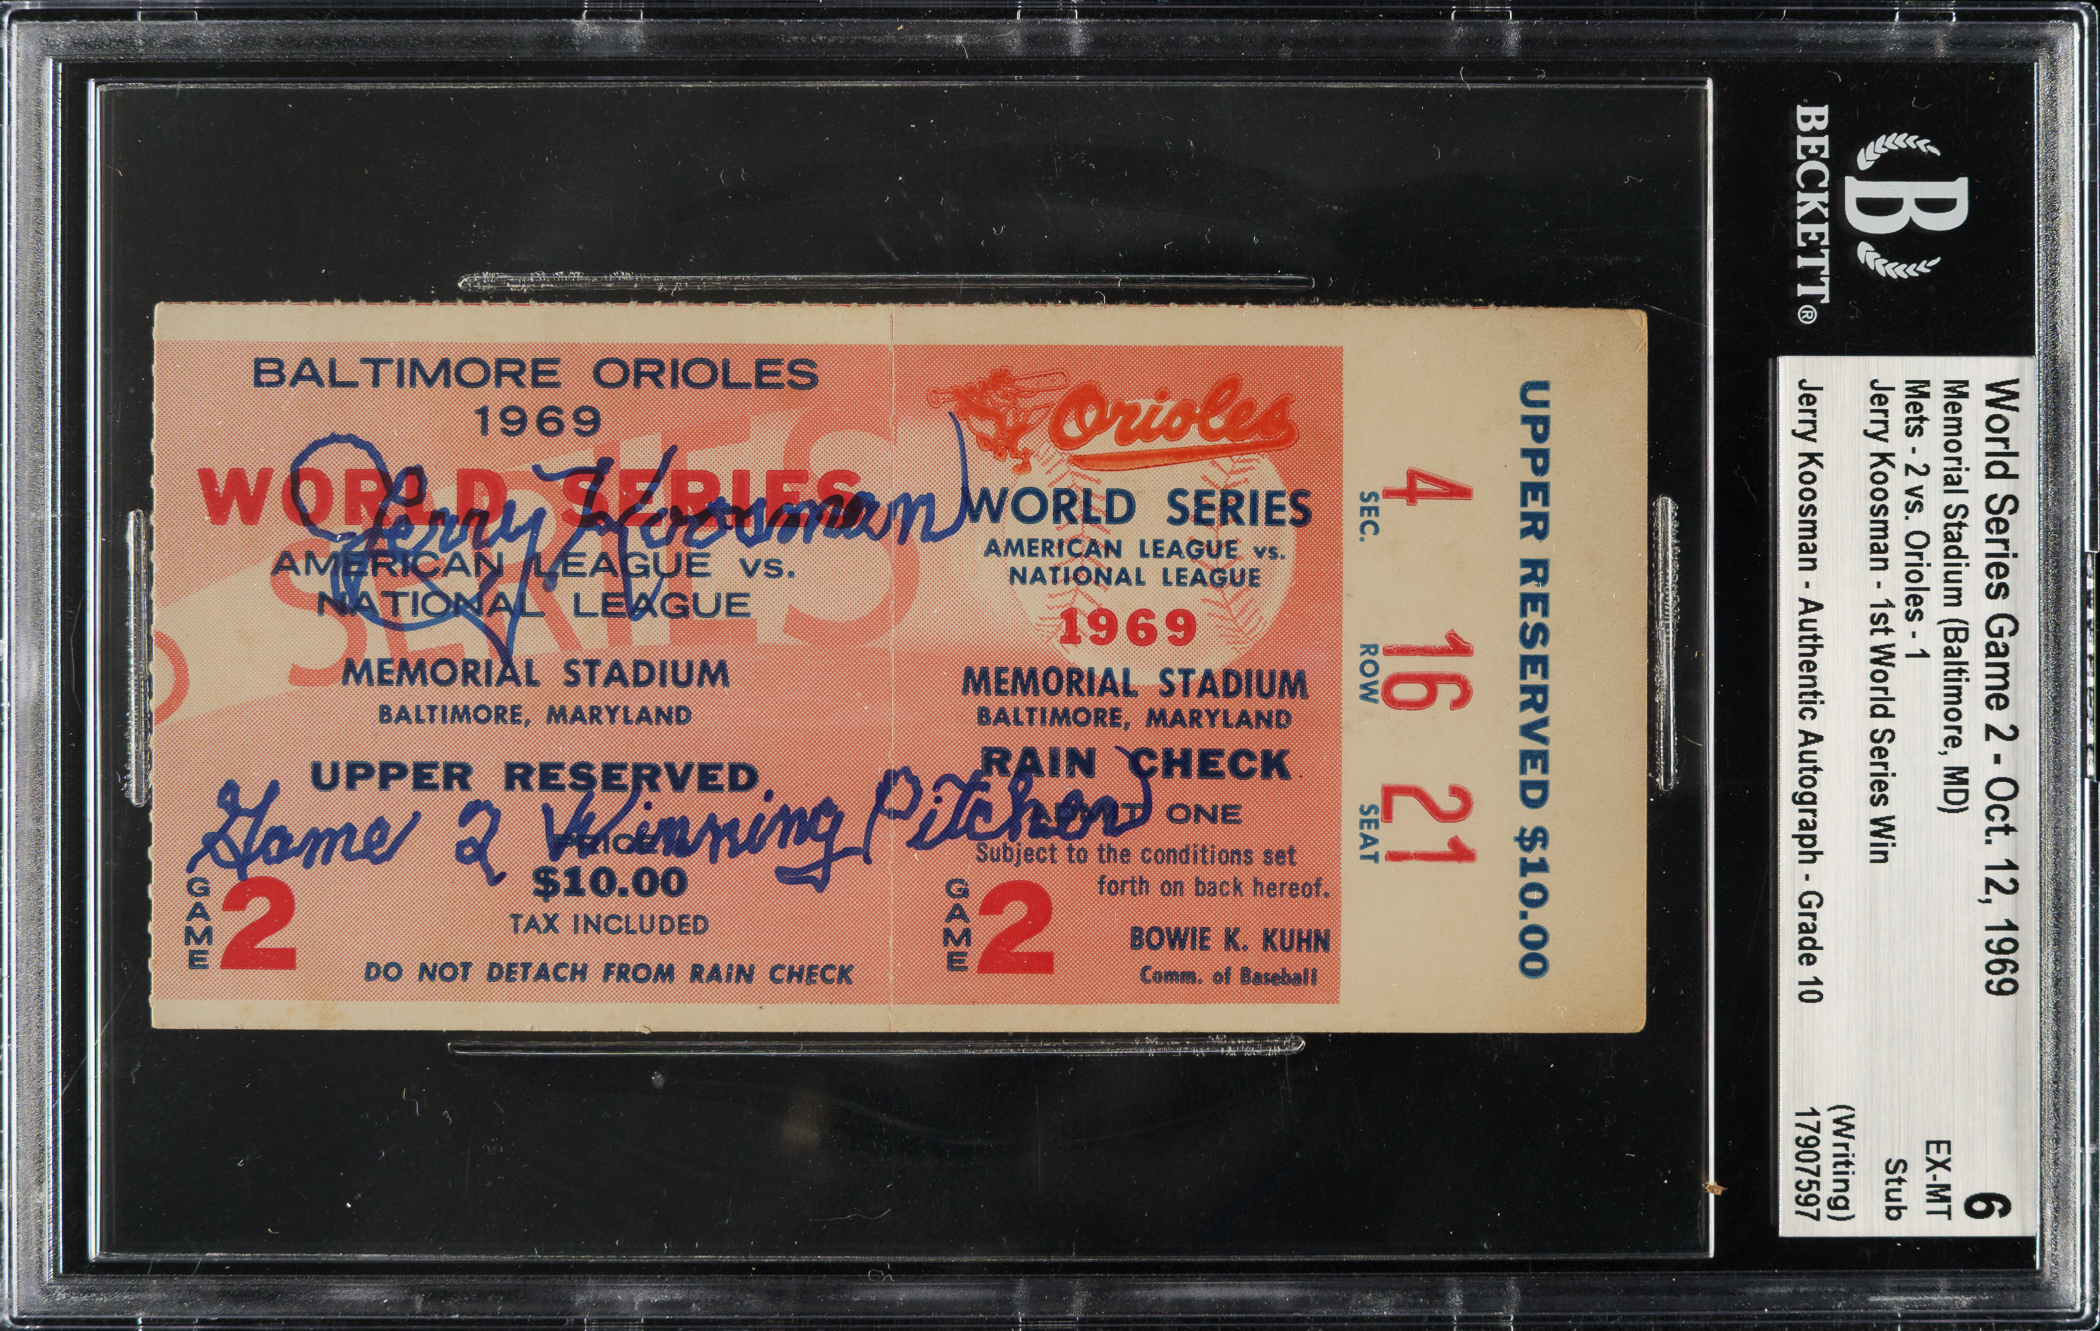 BALTIMORE ORIOLES
1969
WORLD SERIES
SERIES
Jerry Koosman
AMERICAN LEAGUE VS.
NATIONAL LEAGUE
MEMORIAL STADIUM
BALTIMORE, MARYLAND
UPPER RESERVED
Game 2 Winning Pitcher
PRICE
$10.00
TAX INCLUDED
GAME 2
DO NOT DETACH FROM RAIN CHECK
Orioles
WORLD SERIES
AMERICAN LEAGUE vs.
NATIONAL LEAGUE
1969
MEMORIAL STADIUM
BALTIMORE, MARYLAND
RAIN CHECK
ADMIT ONE
Subject to the conditions set
forth on back hereof.
GAME 2
BOWIE K. KUHN
Comm. of Baseball
SEC. 4
ROW 16
SEAT 21
UPPER RESERVED $10.00
B
BECKETT®
World Series Game 2 - Oct. 12, 1969
Memorial Stadium (Baltimore, MD)
Mets - 2 vs. Orioles - 1
Jerry Koosman - 1st World Series Win
Jerry Koosman - Authentic Autograph - Grade 10
6
EX-MT
Stub
(Writing)
17907597